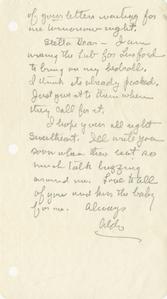 of your letters waiting for
me tomorrow night.
Stella Dear — I am
wiring the Lub for
to bring on my bedroll,
I think its already packed,
Just give it to them when
they call for it.
I hope your all right
Sweetheart. I'll write you
soon when theres not so
much talk buzzing
around me. Love to all
of you and kiss the baby
for me. Always
Aldo